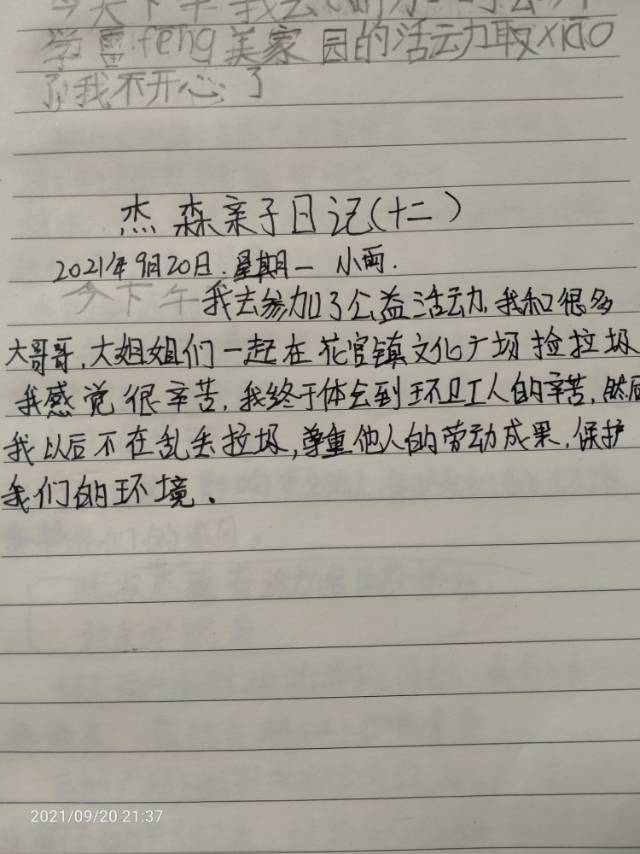 今天下午我去
学雷feng美家园的活动取xiāo
了,我不开心了
杰森亲子日记(十二)
2021年9月20日.星期一 小雨.
今下午我去参加了公益活动,我和很多
大哥哥,大姐姐们一起在花官镇文化广场捡拉圾
我感觉很辛苦,我终于体会到环卫工人的辛苦,然后
我以后不在乱丢拉圾,尊重他人的劳动成果,保护
我们的环境。
2021/09/20 21:37